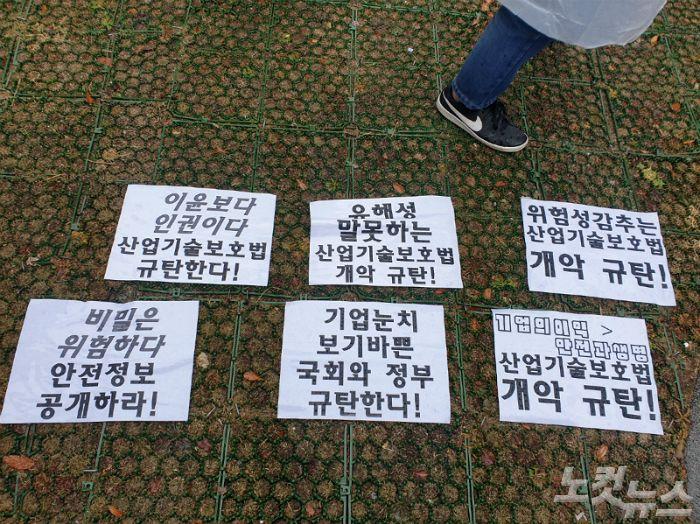 이윤보다
인권이다
산업기술보호법
규탄한다!
유해성
말못하는
산업기술보호법
개악 규탄!
위험성감추는
산업기술보호법
개악 규탄!
비밀은
위험하다
안전정보
공개하라!
기업눈치
보기바쁜
국회와 정부
규탄한다!
기업의이익 >
안전과생명
산업기술보호법
개악 규탄!
노컷뉴스